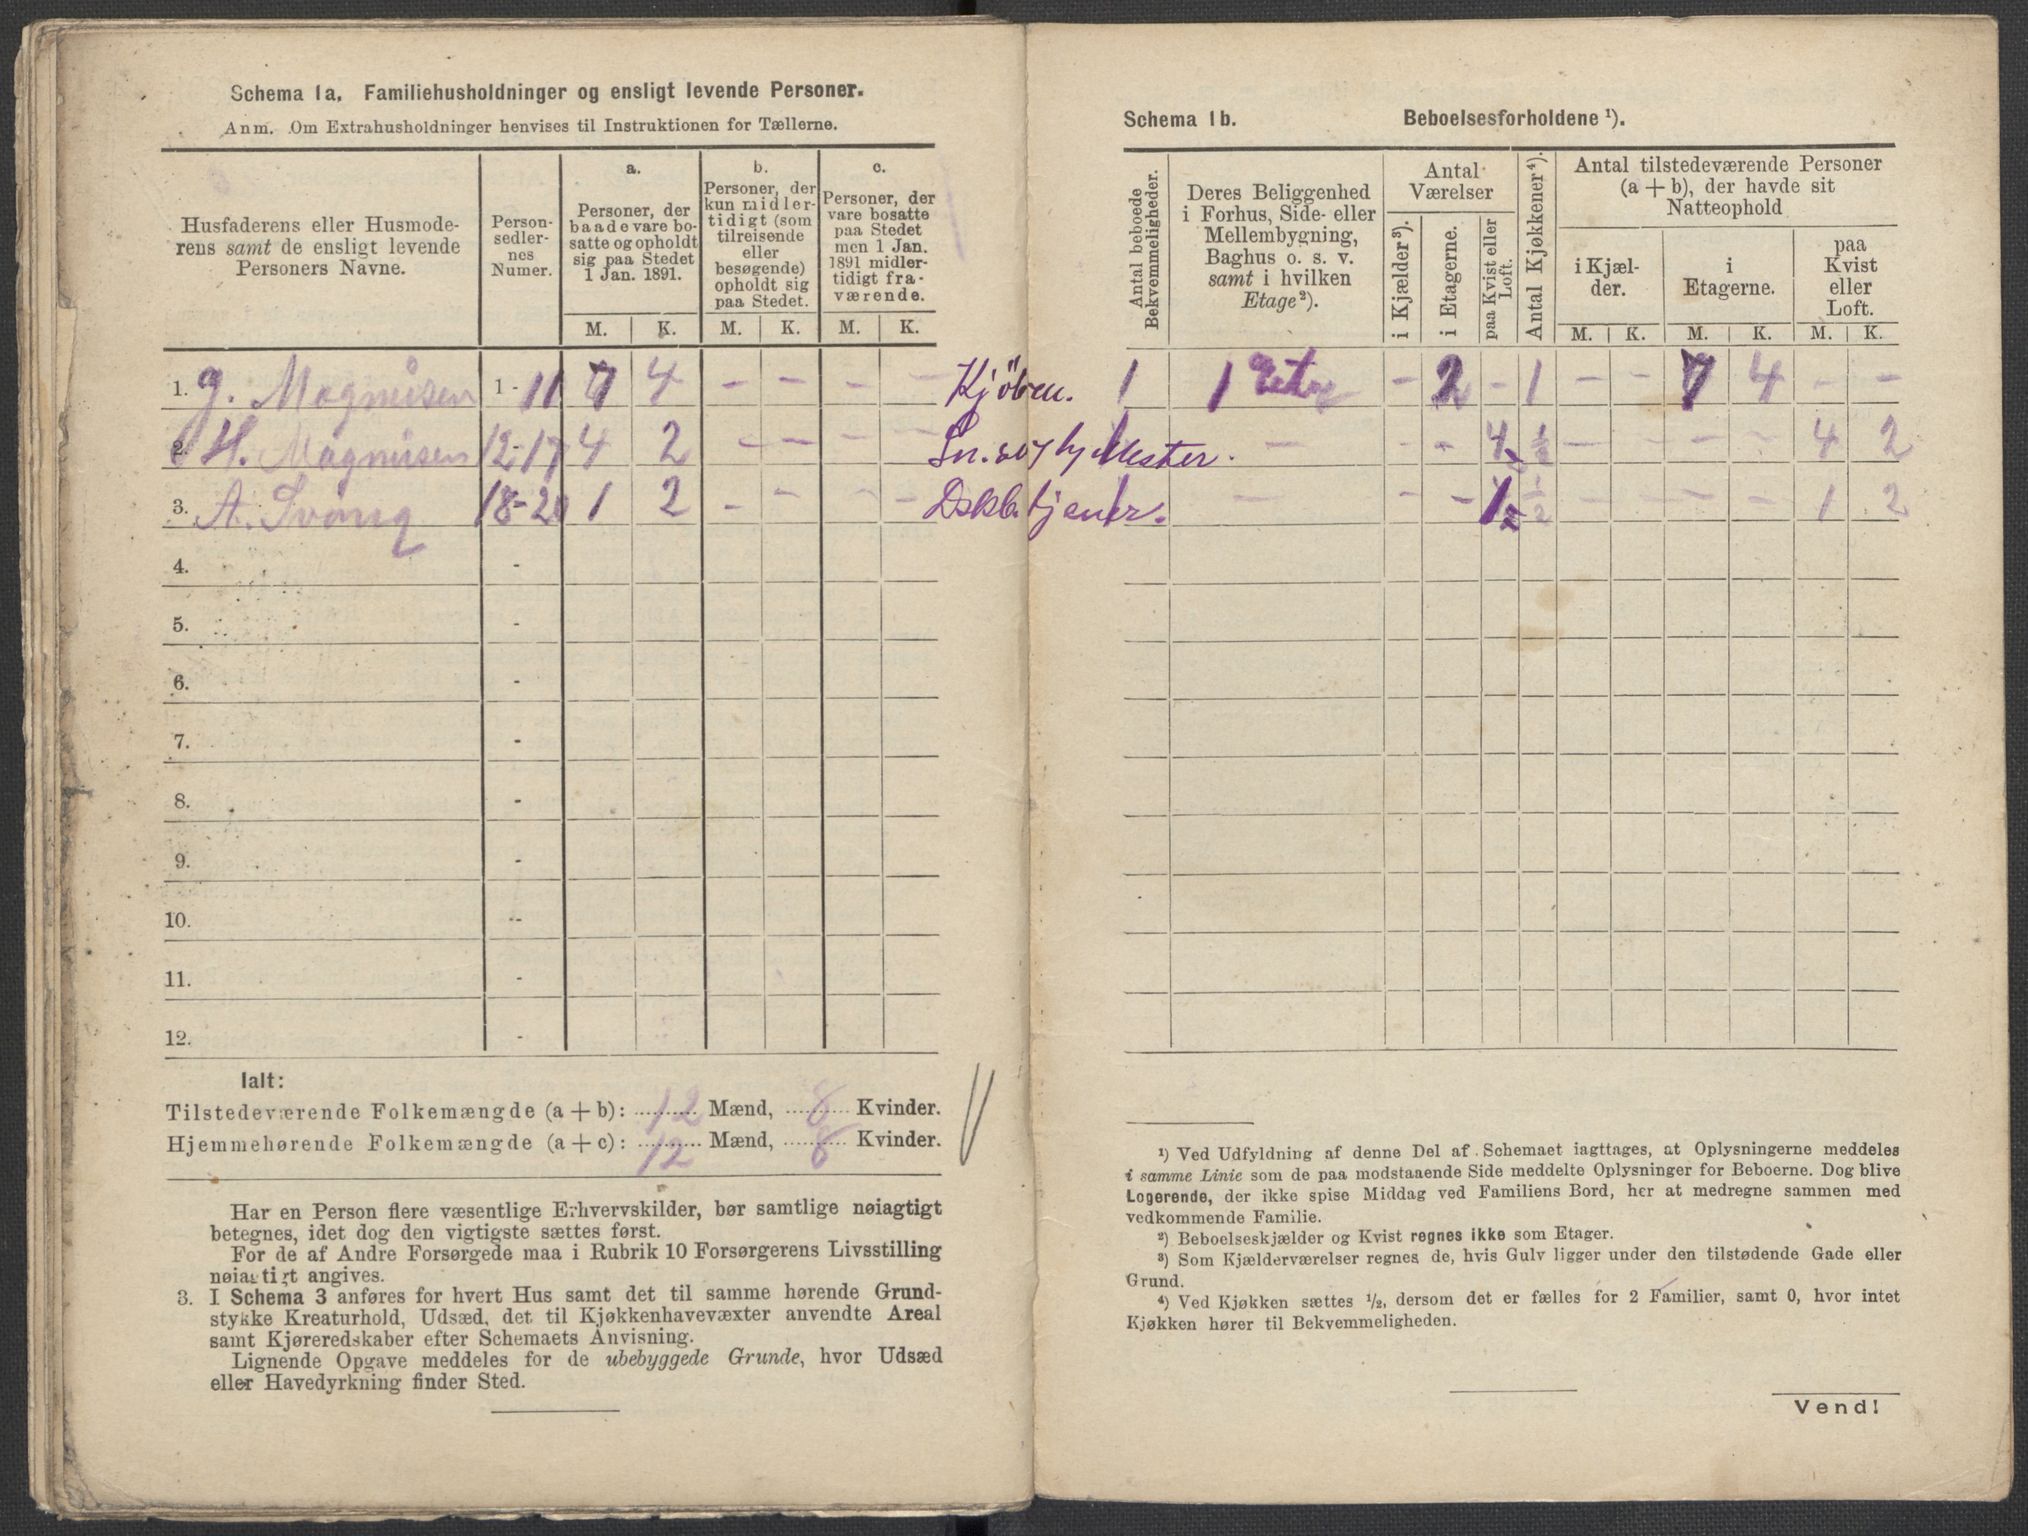 Schema 1a. Familiehusholdninger og ensligt levende Personer.
Anm. Om Extrahusholdninger henvises til Instruktionen for Tællerne.
Husfaderens eller Husmode-
rens samt de ensligt levende
Personers Navne.
Person-
sedler-
nes
Numer.
a.
Personer, der
baade vare bo-
satte og opholdt
sig paa Stedet
1 Jan. 1891.
b.
Personer, der
kun midler-
tidigt (som
tilreisende
eller
besøgende)
opholdt sig
paa Stedet.
c.
Personer, der
vare bosatte
paa Stedet
men 1 Jan.
1891 midler-
tidigt fra-
værende.
M. K. M. K. M. K.
1. G. Magnusen 1 - 11 7 4 – – – – Kjöbm.
2. H. Magnusen 12-17 4 2 – – – –
3. A. Svong 18-20 1 2 – – – –
4. -
5. -
6. -
7. -
8. -
9. -
10. -
11. -
12. -
Ialt:
Tilstedeværende Folkemængde (a + b): 12 Mænd, 8 Kvinder.
Hjemmehørende Folkemængde (a + c): 12 Mænd, 8 Kvinder.
Har en Person flere væsentlige Erhvervskilder, bør samtlige nøiagtigt
betegnes, idet dog den vigtigste sættes først.
For de af Andre Forsørgede maa i Rubrik 10 Forsørgerens Livsstilling
nøiagtigt angives.
3. I Schema 3 anføres for hvert Hus samt det til samme hørende Grund-
stykke Kreaturhold, Udsæd, det til Kjøkkenhavevæxter anvendte Areal
samt Kjøreredskaber efter Schemaets Anvisning.
Lignende Opgave meddeles for de ubebyggede Grunde, hvor Udsæd
eller Havedyrkning finder Sted.
Schema 1b. Beboelsesforholdene ¹).
Antal beboede
Bekvemmeligheder.
Deres Beliggenhed
i Forhus, Side- eller
Mellembygning,
Baghus o. s. v.
samt i hvilken
Etage²).
Antal
Værelser
i Kjælder ³).
i Etagerne.
paa Kvist eller
Loft.
Antal Kjøkkener ⁴).
Antal tilstedeværende Personer
(a + b), der havde sit
Natteophold
i Kjæl-
der.
i
Etagerne.
paa
Kvist
eller
Loft.
M. K. M. K. M. K.
1 1 – 2 – 1 – – 7 4 – –
Mester. – – – 4 ½ – – – – 4 2
tjener. – – – 1 ½ – – – – 1 2
¹) Ved Udfyldning af denne Del af Schemaet iagttages, at Oplysningerne meddeles
i samme Linie som de paa modstaaende Side meddelte Oplysninger for Beboerne. Dog blive
Logerende, der ikke spise Middag ved Familiens Bord, her at medregne sammen med
vedkommende Familie.
²) Beboelseskjælder og Kvist regnes ikke som Etager.
³) Som Kjælderværelser regnes de, hvis Gulv ligger under den tilstødende Gade eller
Grund.
⁴) Ved Kjøkken sættes ½, dersom det er fælles for 2 Familier, samt 0, hvor intet
Kjøkken hører til Bekvemmeligheden.
Vend!